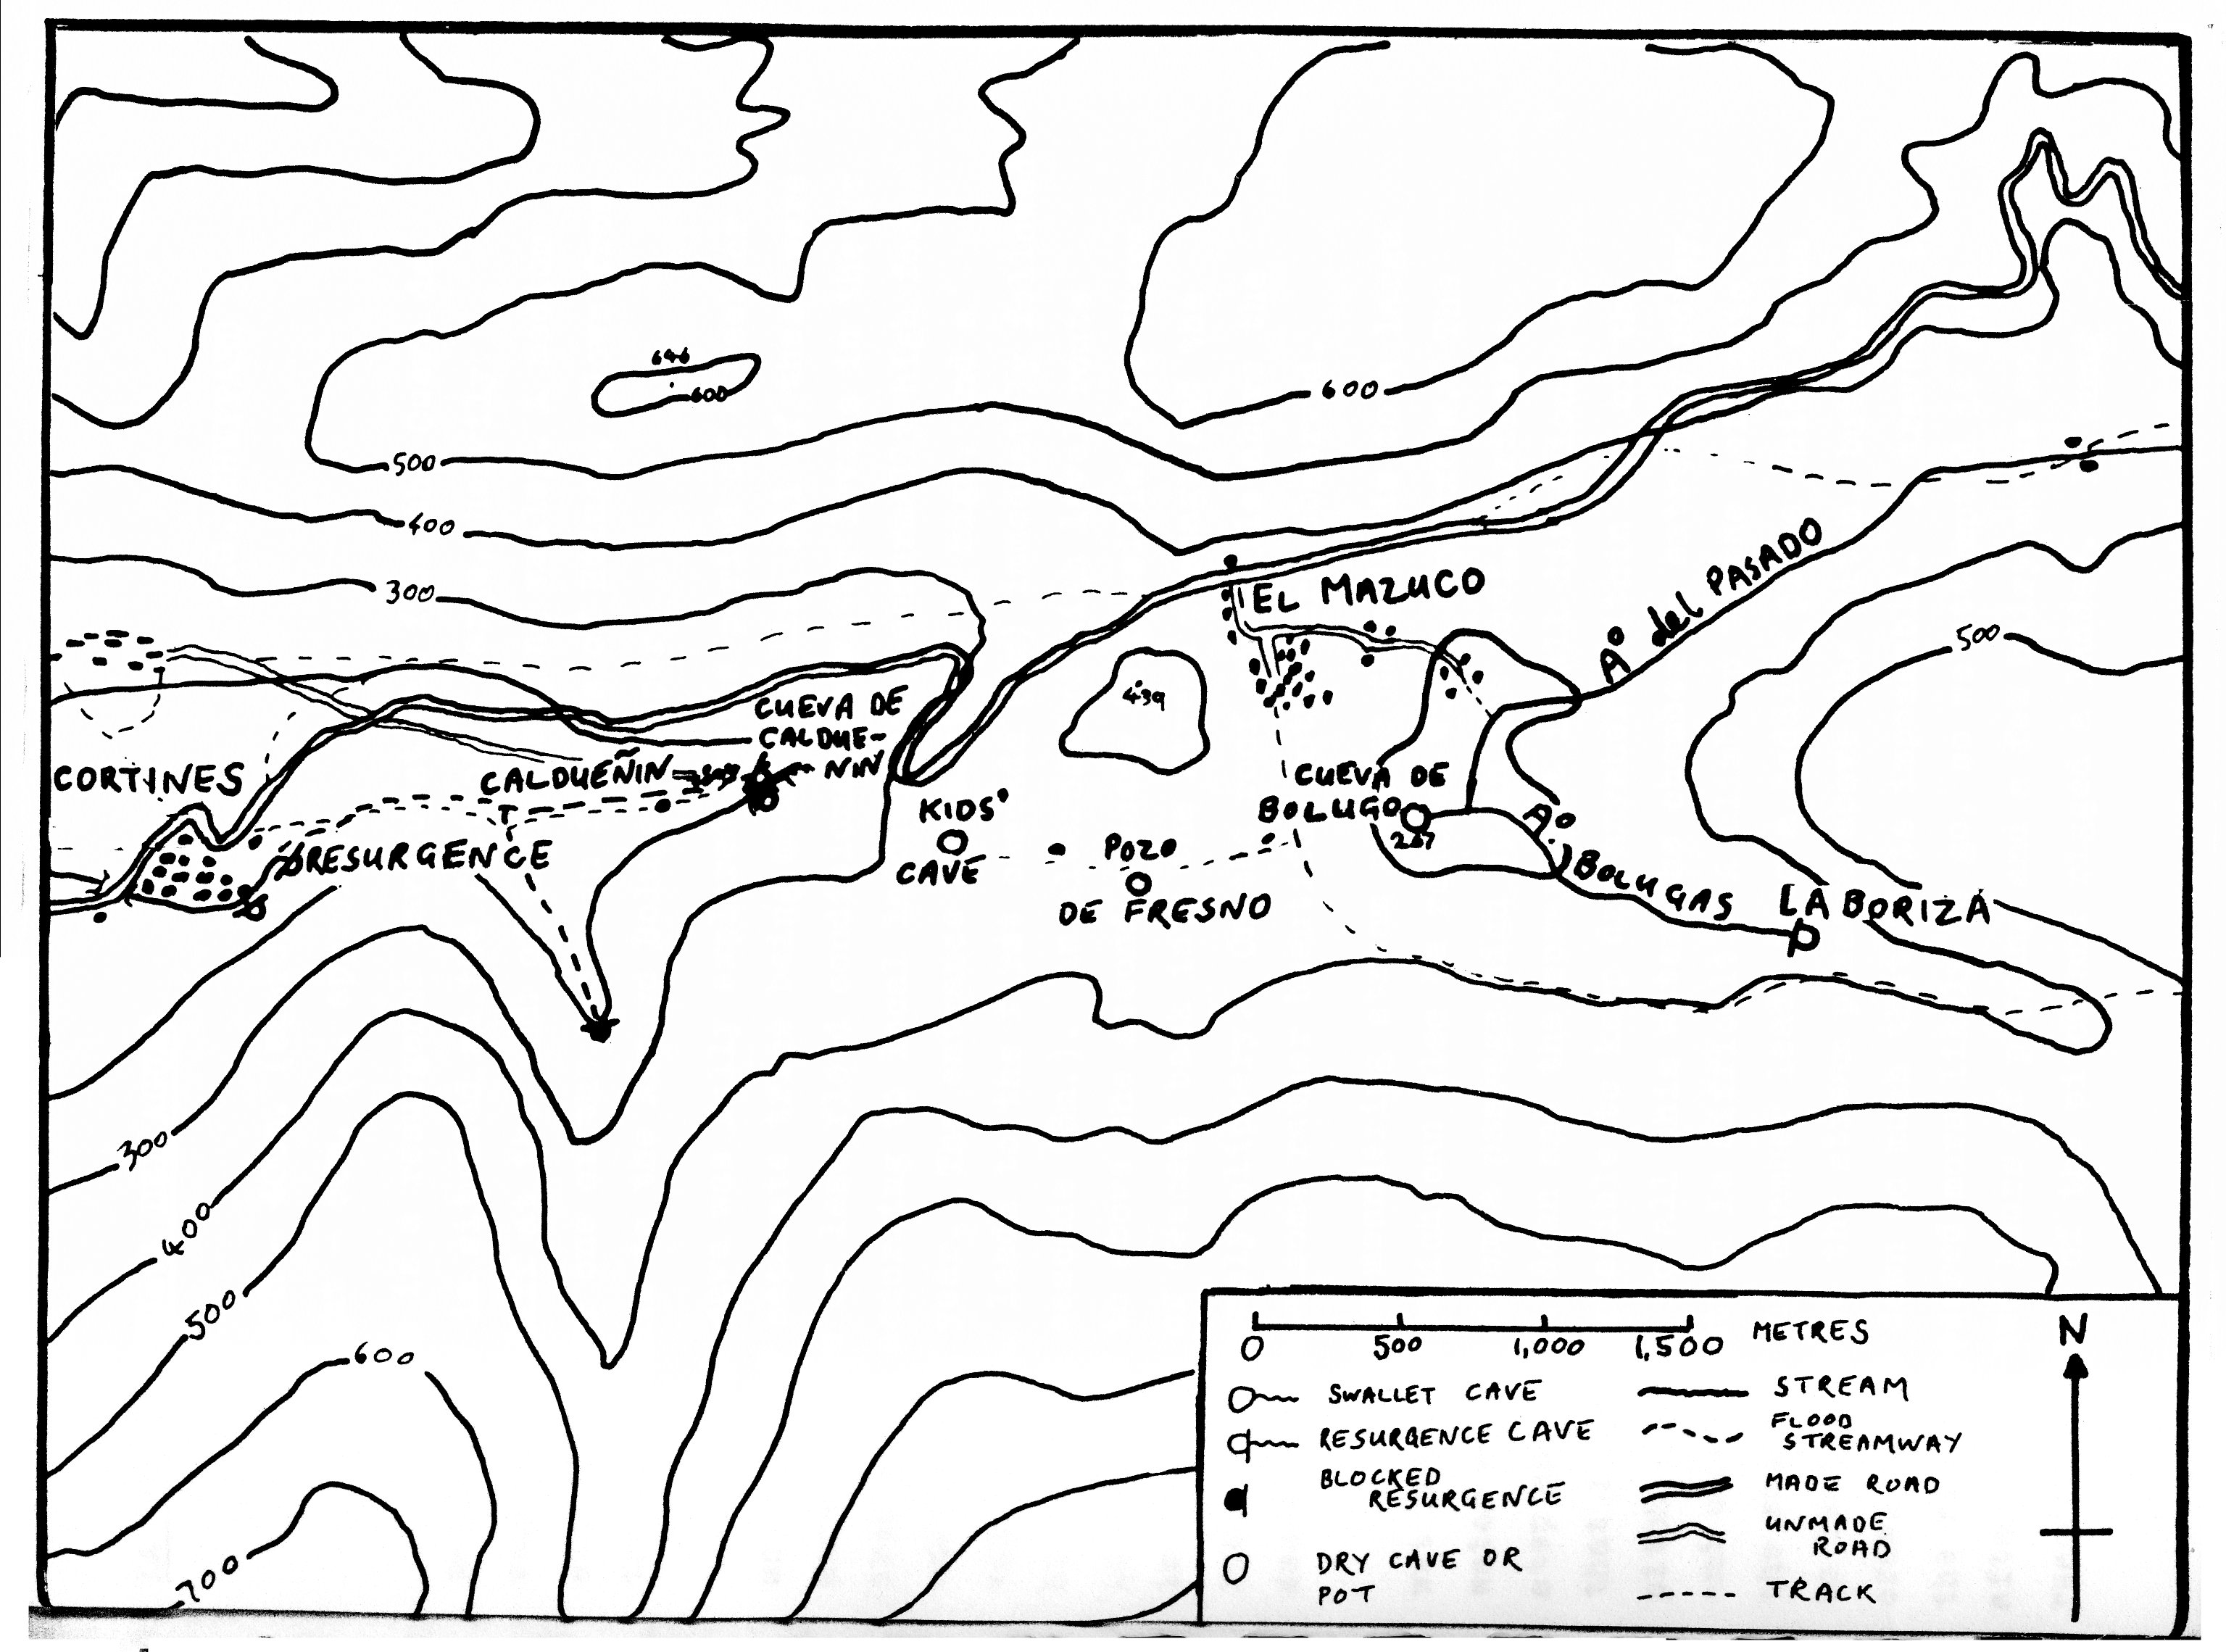 646
600
600
500
400
300
EL MAZUCO
Aº del PASADO
500
439
CUEVA DE
CALDUE-
NIN
CALDUEÑIN
CORTINES
KIDS'
CAVE
CUEVA DE
BOLUGO
267
Aº
BOLUGAS
POZO
DE FRESNO
RESURGENCE
LA BORIZA
300
400
500
600
700
0 500 1,000 1,500 METRES
N
SWALLET CAVE
RESURGENCE CAVE
BLOCKED
RESURGENCE
DRY CAVE OR
POT
STREAM
FLOOD
STREAMWAY
MADE ROAD
UNMADE
ROAD
TRACK